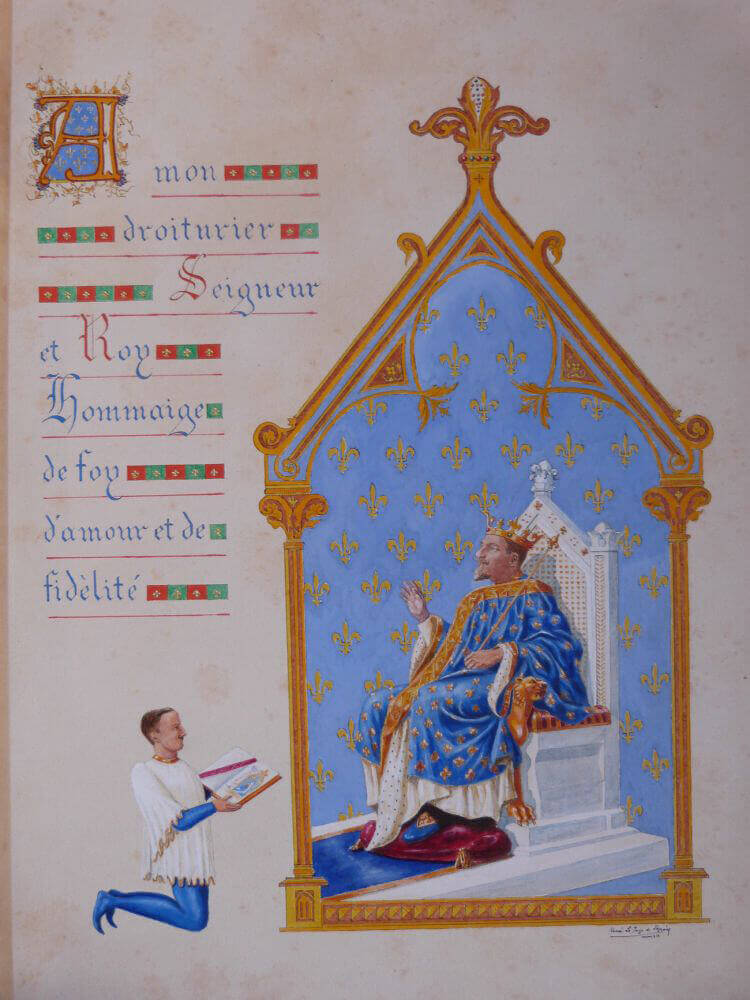 A mon
droiturier
Seigneur
et Roy
Hommaige
de foy
d'amour et de
fidèlité